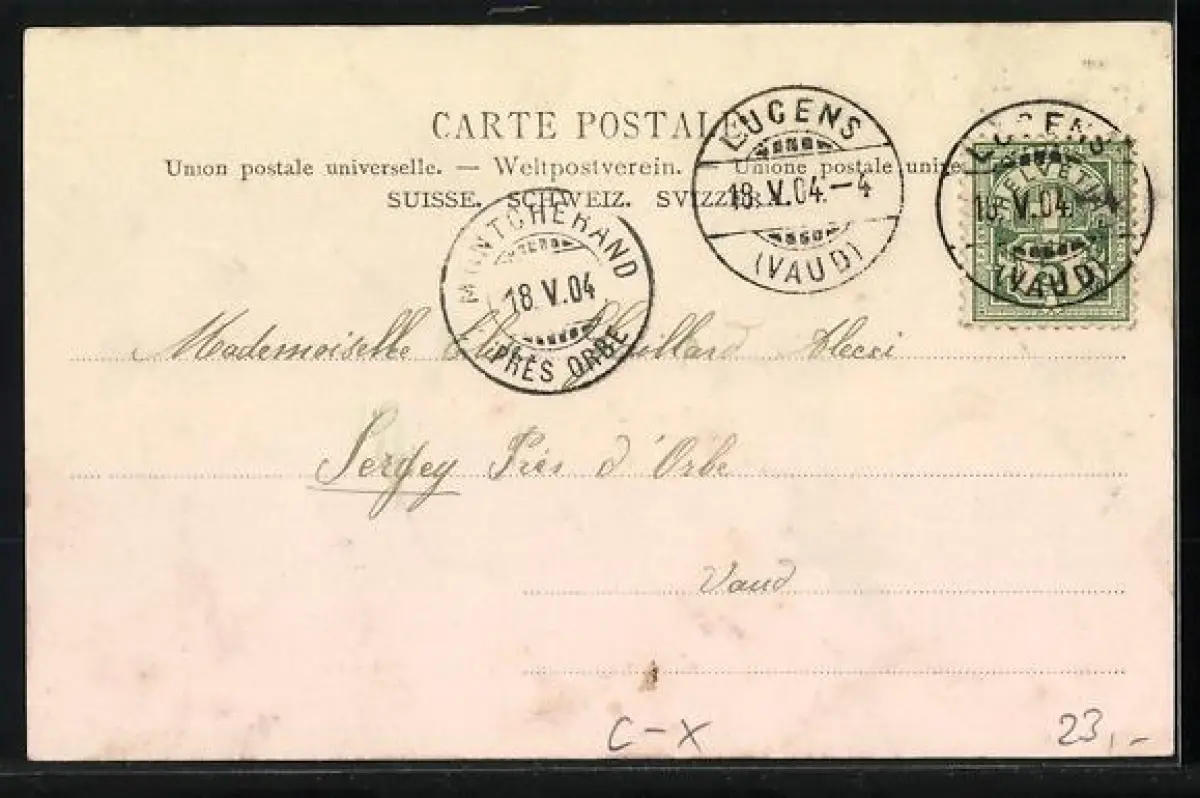 CARTE POSTALE
Union postale universelle. — Weltpostverein. — Unione postale unive
SUISSE. SCHWEIZ. SVIZZERA.
LUCENS
18.V.04.–4
(VAUD)
LUCENS
HELVETIA
18.V.04.–4
(VAUD)
MONTCHERAND
18.V.04
PRÈS ORBE
Mademoiselle
Sergey Près d'Orbe
Vaud
C–X
23,–